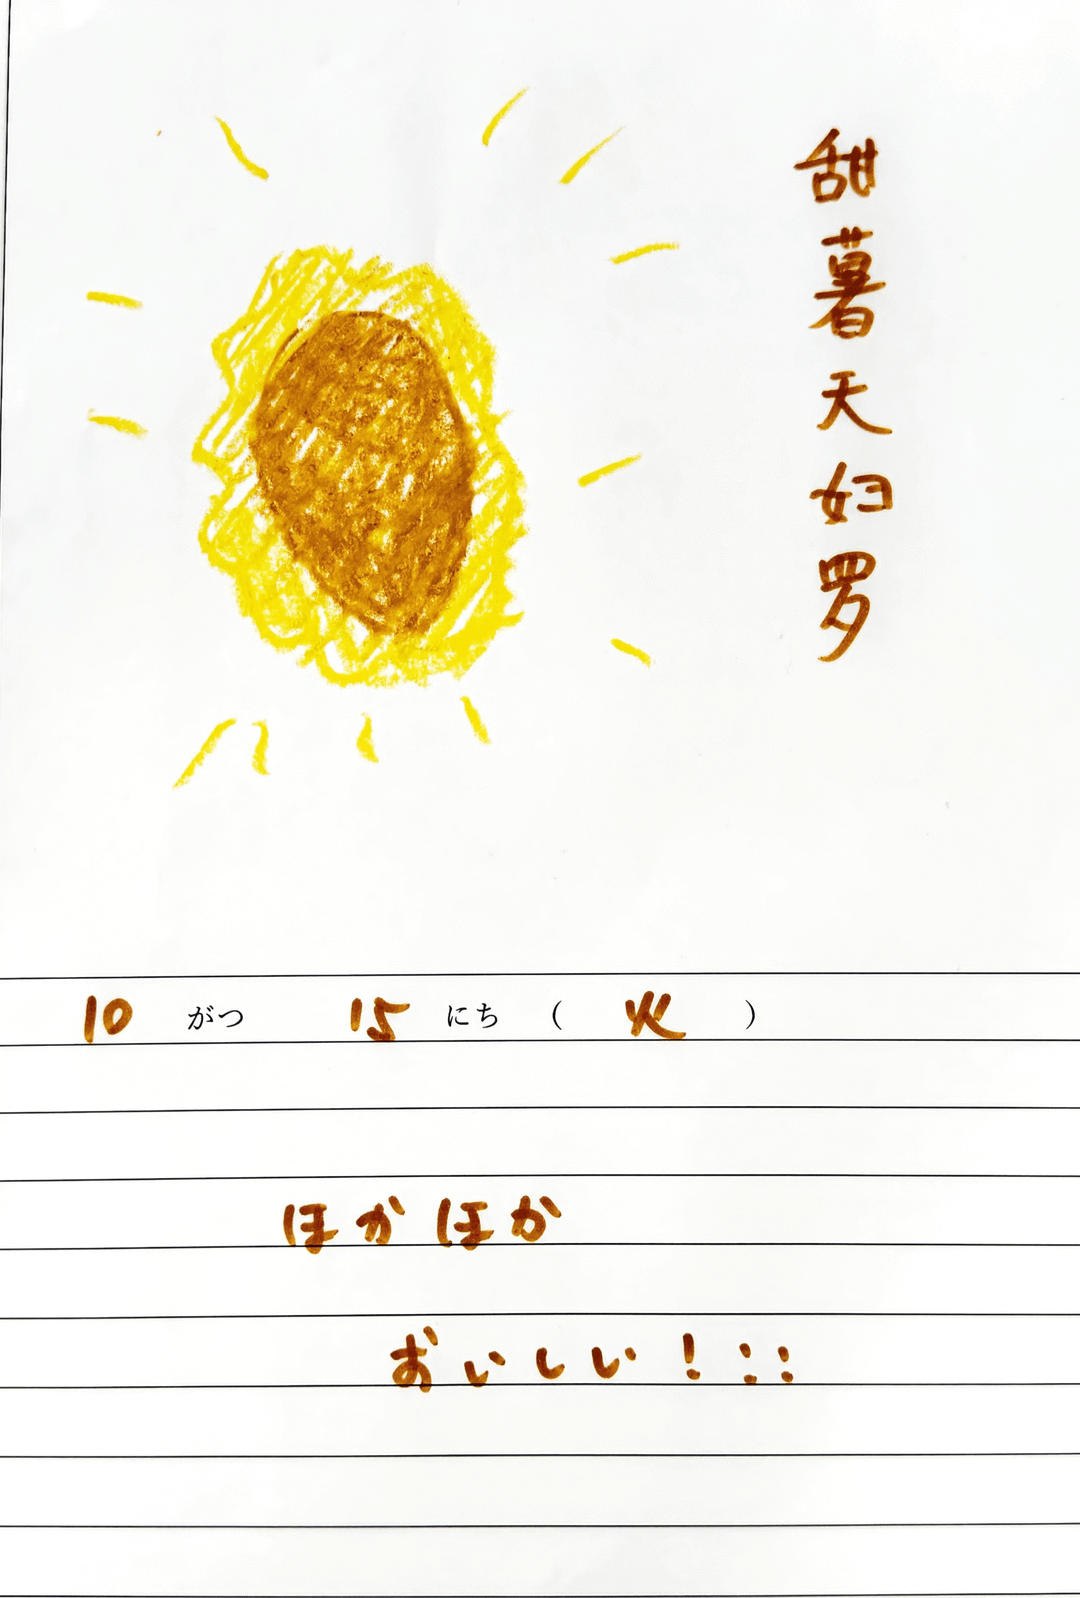 甜薯天妇罗
10 がつ 15 にち ( 火 )
ほかほか
おいしい!